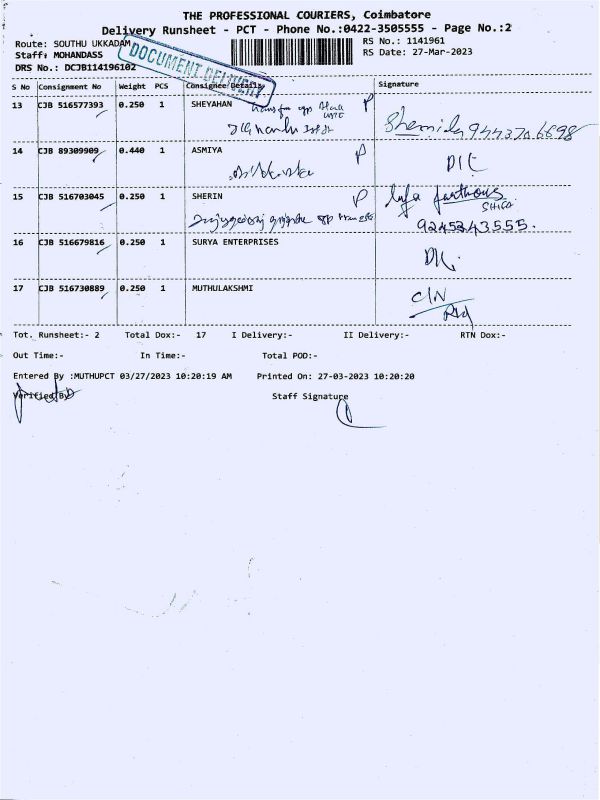 THE PROFESSIONAL COURIERS, Coimbatore
Delivery Runsheet - PCT - Phone No.:0422-3505555 - Page No.:2
Route: SOUTHU UKKADAM
RS No.: 1141961
Staff: MOHANDASS
RS Date: 27-Mar-2023
DRS No.: DCJB114196102
DOCUMENT DELIVERY
S No Consignment No Weight PCS Consignee Details Signature
13 CJB 516577393 0.250 1 SHEYAHAN P
Shemila 9443706698
14 CJB 89309909 0.440 1 ASMIYA P
15 CJB 516703045 0.250 1 SHERIN P
9245243555.
16 CJB 516679816 0.250 1 SURYA ENTERPRISES
17 CJB 516730889 0.250 1 MUTHULAKSHMI C/N
Tot. Runsheet:- 2 Total Dox:- 17 I Delivery:- II Delivery:- RTN Dox:-
Out Time:- In Time:- Total POD:-
Entered By :MUTHUPCT 03/27/2023 10:20:19 AM Printed On: 27-03-2023 10:20:20
Verified By Staff Signature